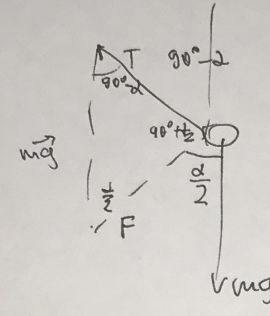 T
90°-2
90°-α
90°+½
mg
α/2
½
F
mg